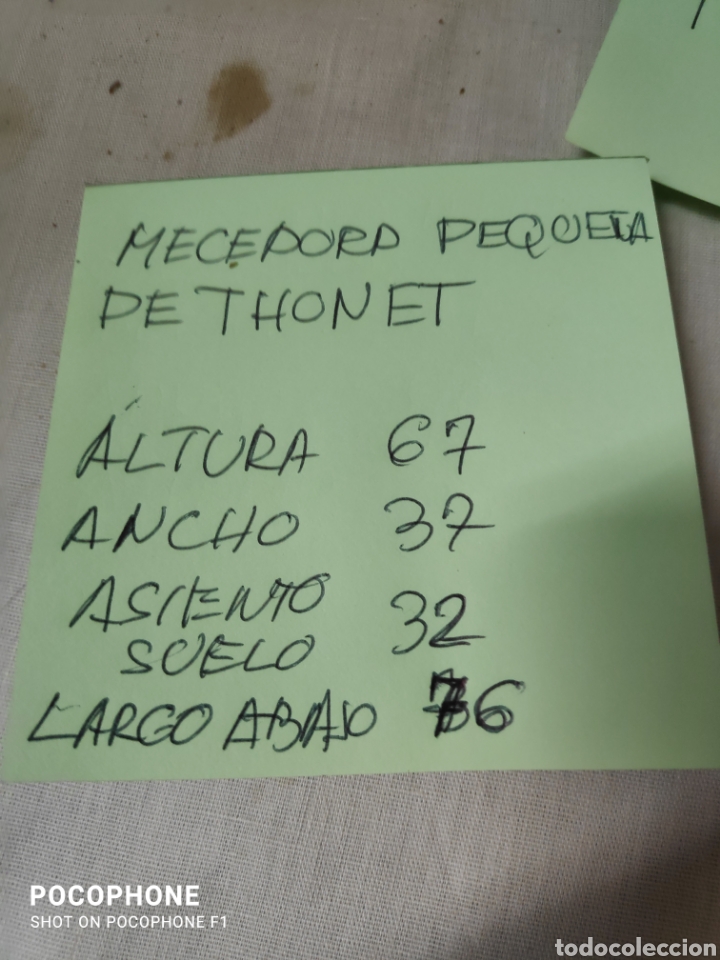 MECEDORA PEQUEÑA
DE THONET
ALTURA 67
ANCHO 37
ASIENTO 32
SUELO
LARGO ABAJO 76
POCOPHONE
SHOT ON POCOPHONE F1
todocoleccion